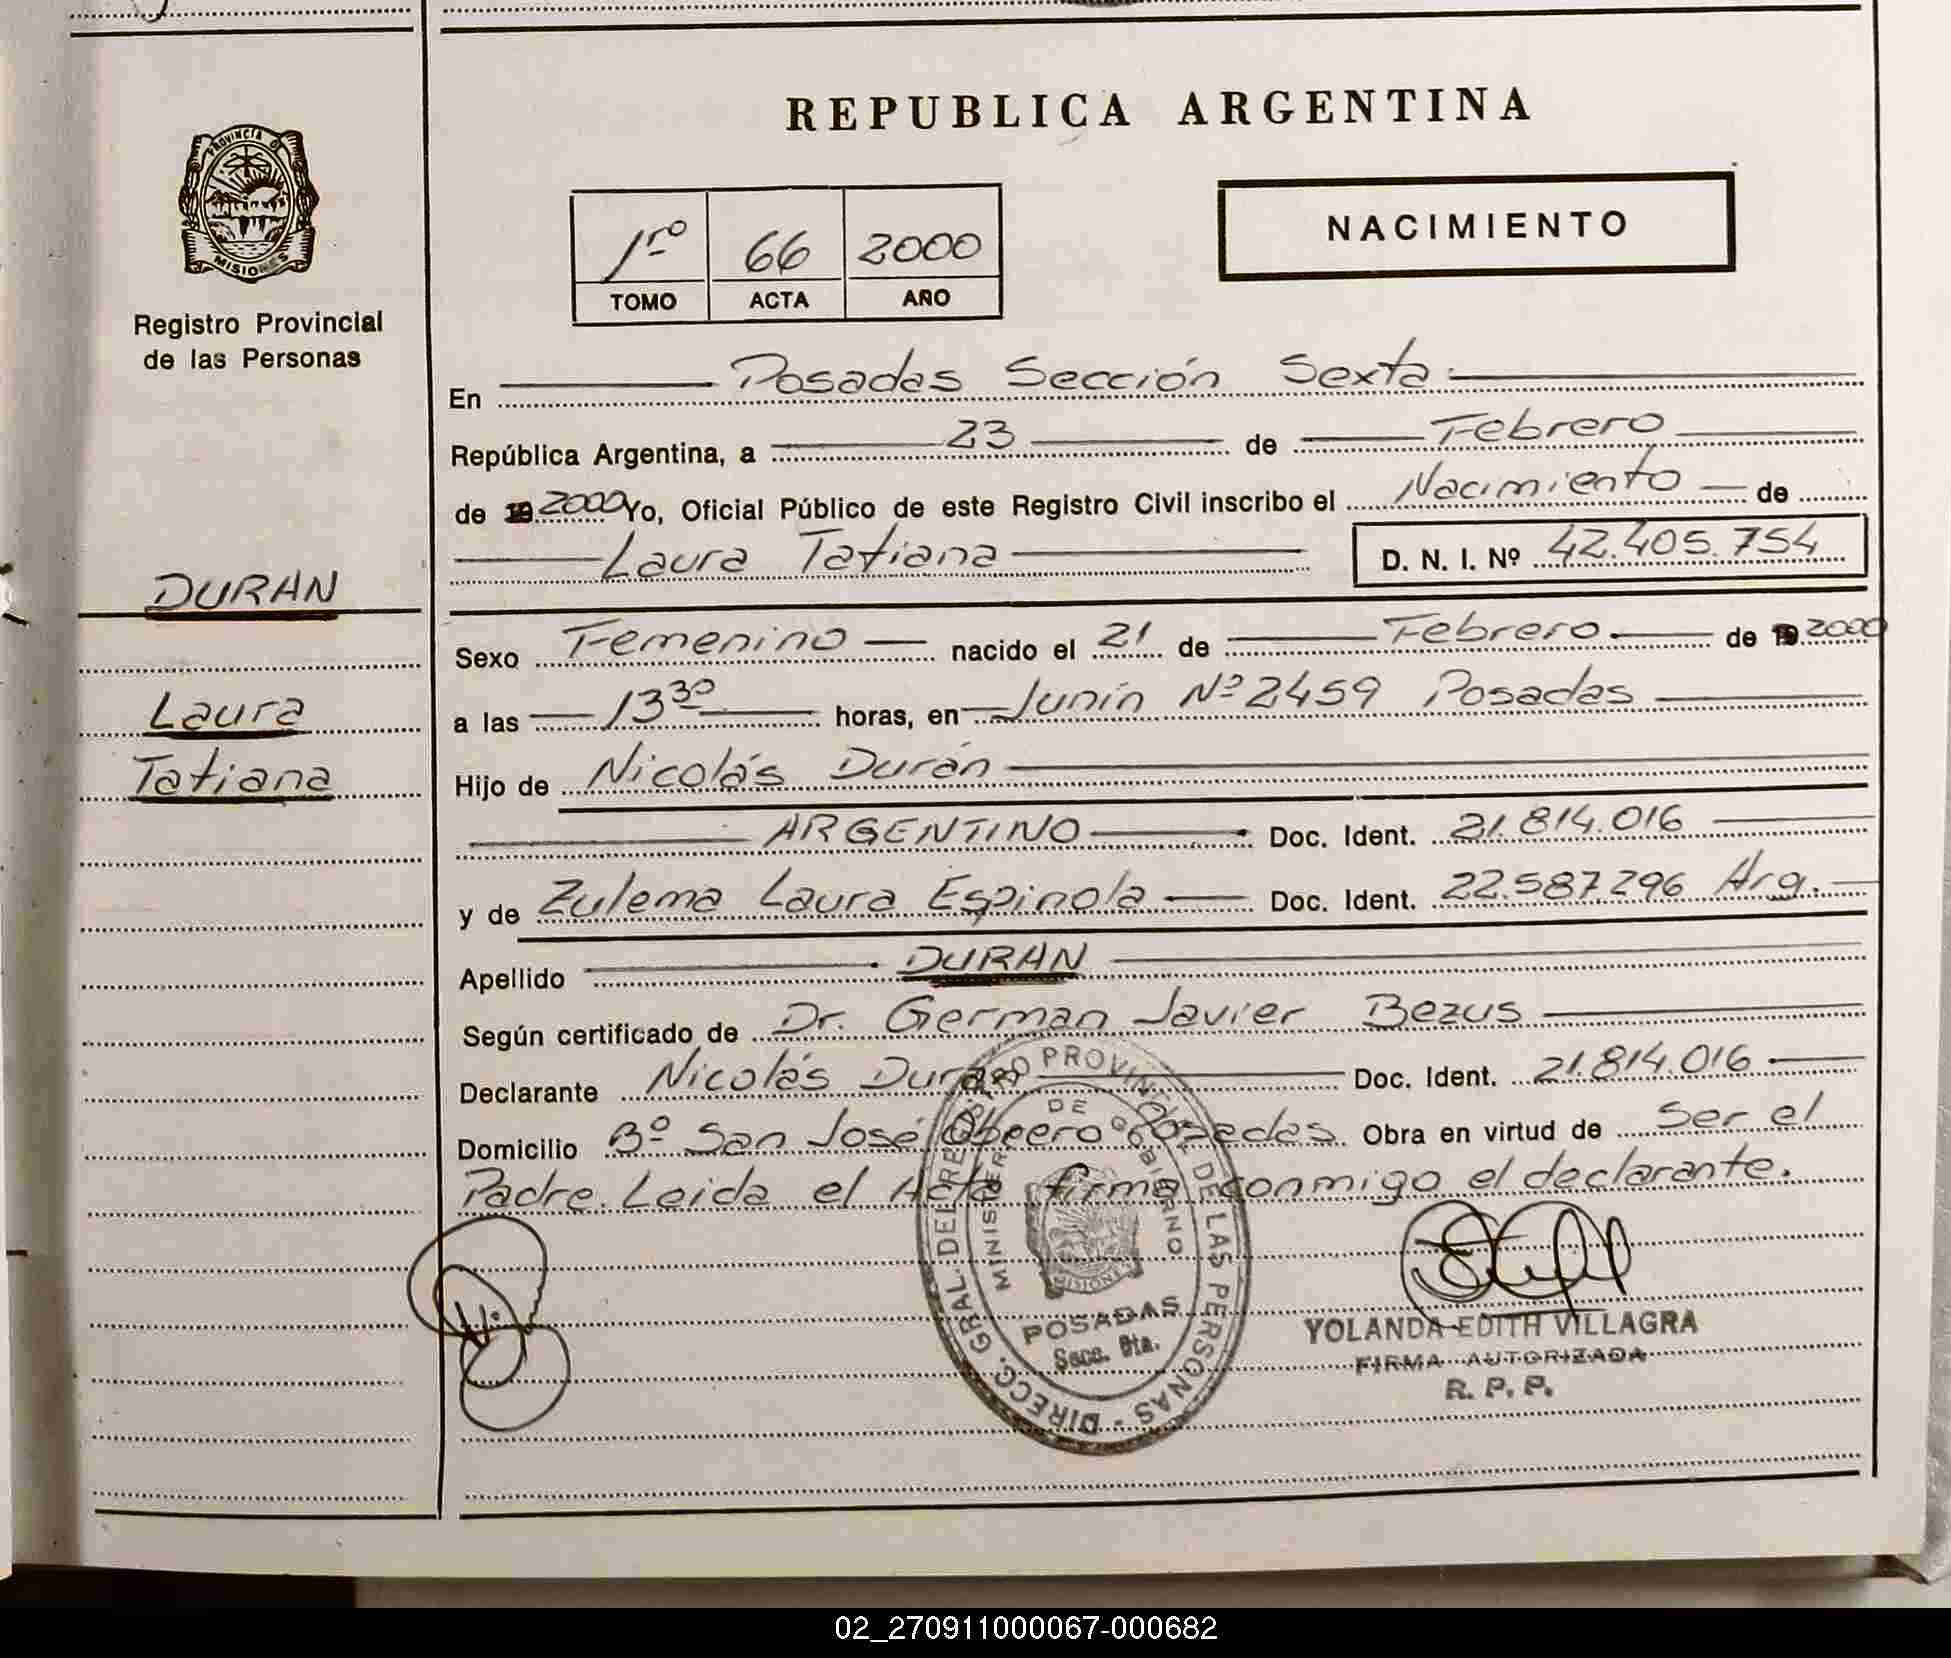 REPUBLICA ARGENTINA
PROVINCIA DE
MISIONES
Registro Provincial
de las Personas
1ro 66 2000
TOMO ACTA AÑO
NACIMIENTO
En Posadas Sección Sexta
República Argentina, a 23 de Febrero
de 19 2000 Yo, Oficial Público de este Registro Civil inscribo el Nacimiento de
Laura Tatiana D. N. I. Nº 42.405.754
DURAN
Laura
Tatiana
Sexo Femenino nacido el 21 de Febrero de 19 2000
a las 13 30 horas, en Junín Nº 2459 Posadas
Hijo de Nicolás Durán
ARGENTINO Doc. Ident. 21.814.016
y de Zulema Laura Espinola Doc. Ident. 22.587.296 Arg.
Apellido DURAN
Según certificado de Dr. German Javier Bezus
Declarante Nicolás Duran Doc. Ident. 21.814.016
Domicilio Bº San José Obrero Posadas Obra en virtud de Ser el
Padre. Leida el Acta firma conmigo el declarante.
DIRECC. GRAL. DEL REGISTRO PROVINCIAL DE LAS PERSONAS
MINISTERIO DE GOBIERNO
MISIONES
POSADAS
Secc. 6ta.
YOLANDA EDITH VILLAGRA
FIRMA AUTORIZADA
R. P. P.
02_270911000067-000682